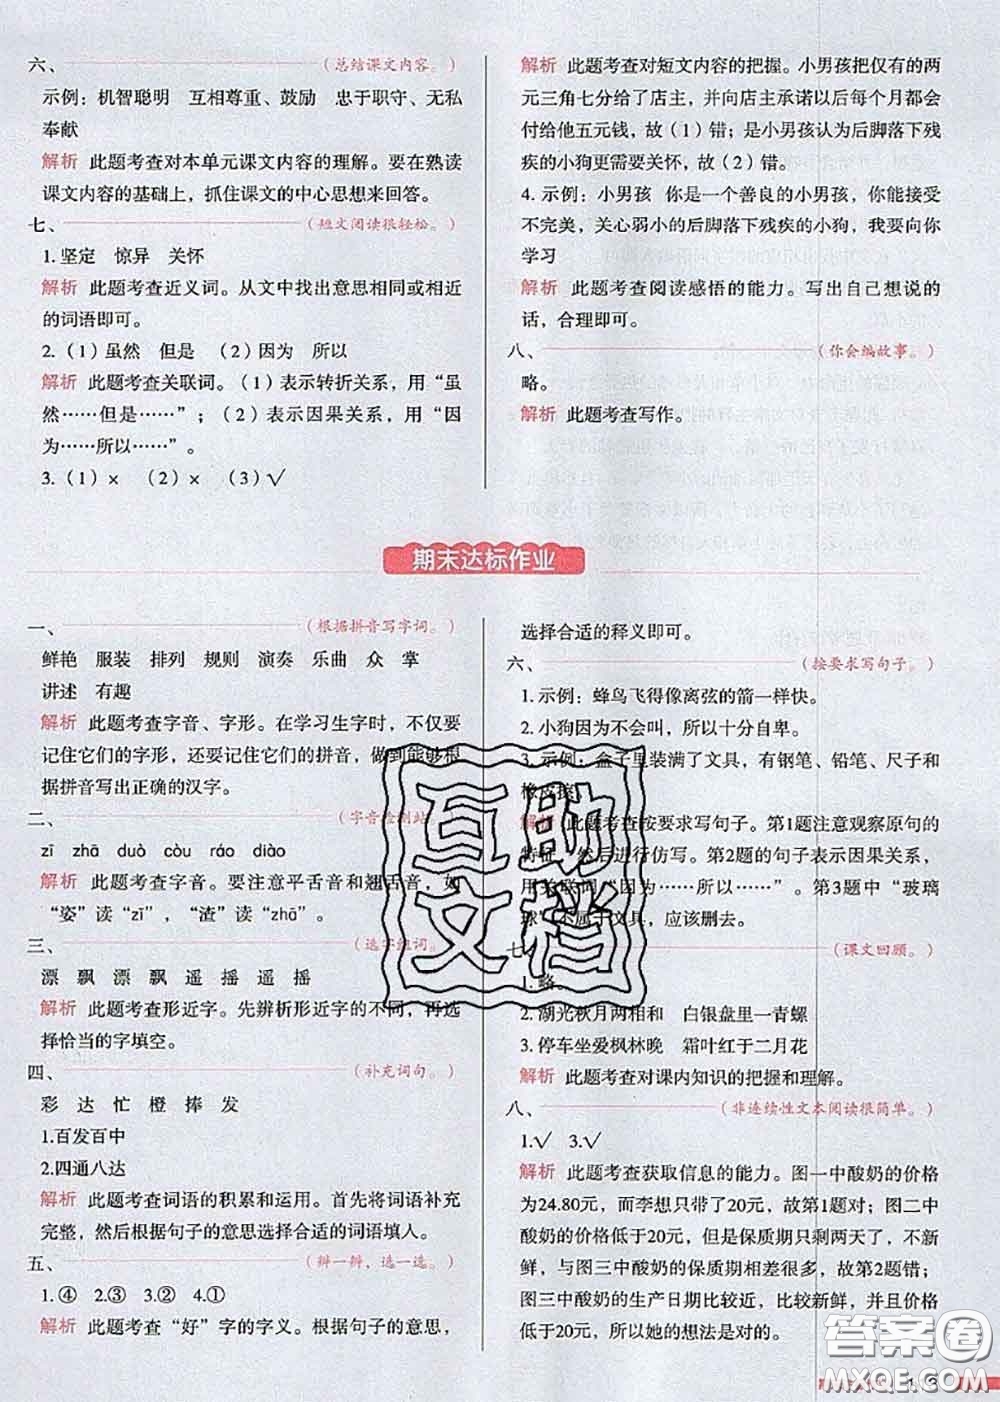 六、（总结课文内容。）
示例：机智聪明　互相尊重、鼓励　忠于职守、无私
奉献
解析　此题考查对本单元课文内容的理解。要在熟读
课文内容的基础上，抓住课文的中心思想来回答。
七、（短文阅读很轻松。）
1. 坚定　惊异　关怀
解析　此题考查近义词。从文中找出意思相同或相近
的词语即可。
2.（1）虽然　但是　（2）因为　所以
解析　此题考查关联词。（1）表示转折关系，用“虽
然……但是……”；（2）表示因果关系，用“因
为……所以……”。
3.（1）×　（2）×　（3）√
解析　此题考查对短文内容的把握。小男孩把仅有的两
元三角七分给了店主，并向店主承诺以后每个月都会
付给他五元钱，故（1）错；是小男孩认为后脚落下残
疾的小狗更需要关怀，故（2）错。
4. 示例：小男孩　你是一个善良的小男孩，你能接受
不完美，关心弱小的后脚落下残疾的小狗，我要向你
学习
解析　此题考查阅读感悟的能力。写出自己想说的
话，合理即可。
八、（你会编故事。）
略。
解析　此题考查写作。
期末达标作业
一、（根据拼音写字词。）
鲜艳　服装　排列　规则　演奏　乐曲　众　掌
讲述　有趣
解析　此题考查字音、字形。在学习生字时，不仅要
记住它们的字形，还要记住它们的拼音，做到能够根
据拼音写出正确的汉字。
二、（字音检测站。）
zī　zhā　duò　còu　ráo　diào
解析　此题考查字音。要注意平舌音和翘舌音，如
“姿”读“zī”，“渣”读“zhā”。
三、（选字组词。）
漂　飘　漂　飘　遥　摇　遥　摇
解析　此题考查形近字。先辨析形近字的不同，再选
择恰当的字填空。
四、（补充词句。）
彩　达　忙　橙　捧　发
1.百发百中
2.四通八达
解析　此题考查词语的积累和运用。首先将词语补充
完整，然后根据句子的意思选择合适的词语填入。
五、（辩一辩，选一选。）
1.④　2.③　3.②　4.①
解析　此题考查“好”字的字义。根据句子的意思，
选择合适的释义即可。
六、（按要求写句子。）
1. 示例：蜂鸟飞得像离弦的箭一样快。
2. 小狗因为不会叫，所以十分自卑。
3. 示例：盒子里装满了文具，有钢笔、铅笔、尺子和
橡皮擦。
解析　此题考查按要求写句子。第1题注意观察原句的
特征，然后进行仿写。第2题的句子表示因果关系，
用关联词“因为……所以……”。第3题中“玻璃
球”不属于文具，应该删去。
七、（课文回顾。）
1. 略。
2. 湖光秋月两相和　白银盘里一青螺
3. 停车坐爱枫林晚　霜叶红于二月花
解析　此题考查对课内知识的把握和理解。
八、（非连续性文本阅读很简单。）
1.√　3.√
解析　此题考查获取信息的能力。图一中酸奶的价格
为24.80元，而李想只带了20元，故第1题对；图二中
酸奶的价格低于20元，但是保质期只剩两天了，不新
鲜，与图三中酸奶的保质期相差很多，故第2题错；
图三中酸奶的生产日期比较近，比较新鲜，并且价格
低于20元，所以她的想法是对的。
互助
文档
答案圈
MXQE.COM